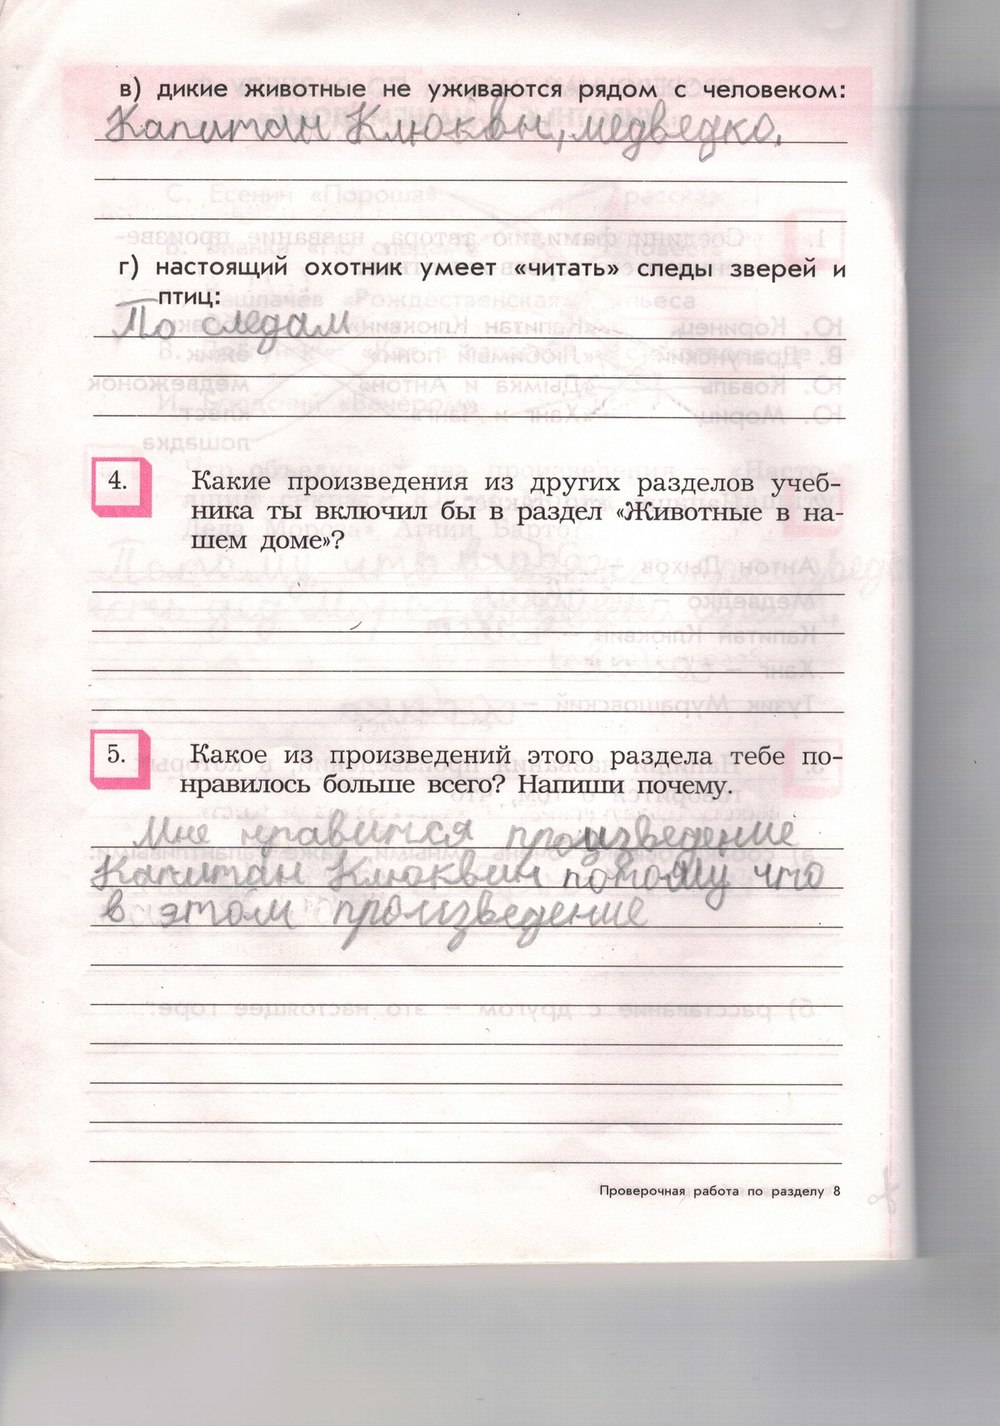 в) дикие животные не уживаются рядом с человеком:
Капитан Клюквн, медведко.
г) настоящий охотник умеет «читать» следы зверей и
птиц:
По следам
4. Какие произведения из других разделов учеб-
ника ты включил бы в раздел «Животные в на-
шем доме»?
5. Какое из произведений этого раздела тебе по-
нравилось больше всего? Напиши почему.
Мне нравится произведение
Капитан Клюквин потому что
в этом произведение
Проверочная работа по разделу 8